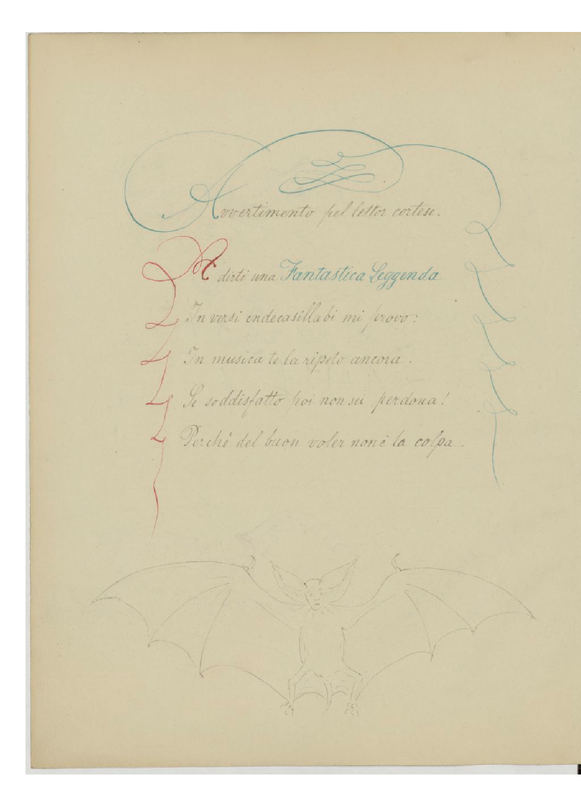 Avvertimento pel lettor cortese.
A dirti una Fantastica Leggenda
In versi endecasillabi mi provo:
In musica te la ripeto ancora.
Se soddisfatto poi non sei perdona!
Perchè del buon voler non è la colpa.